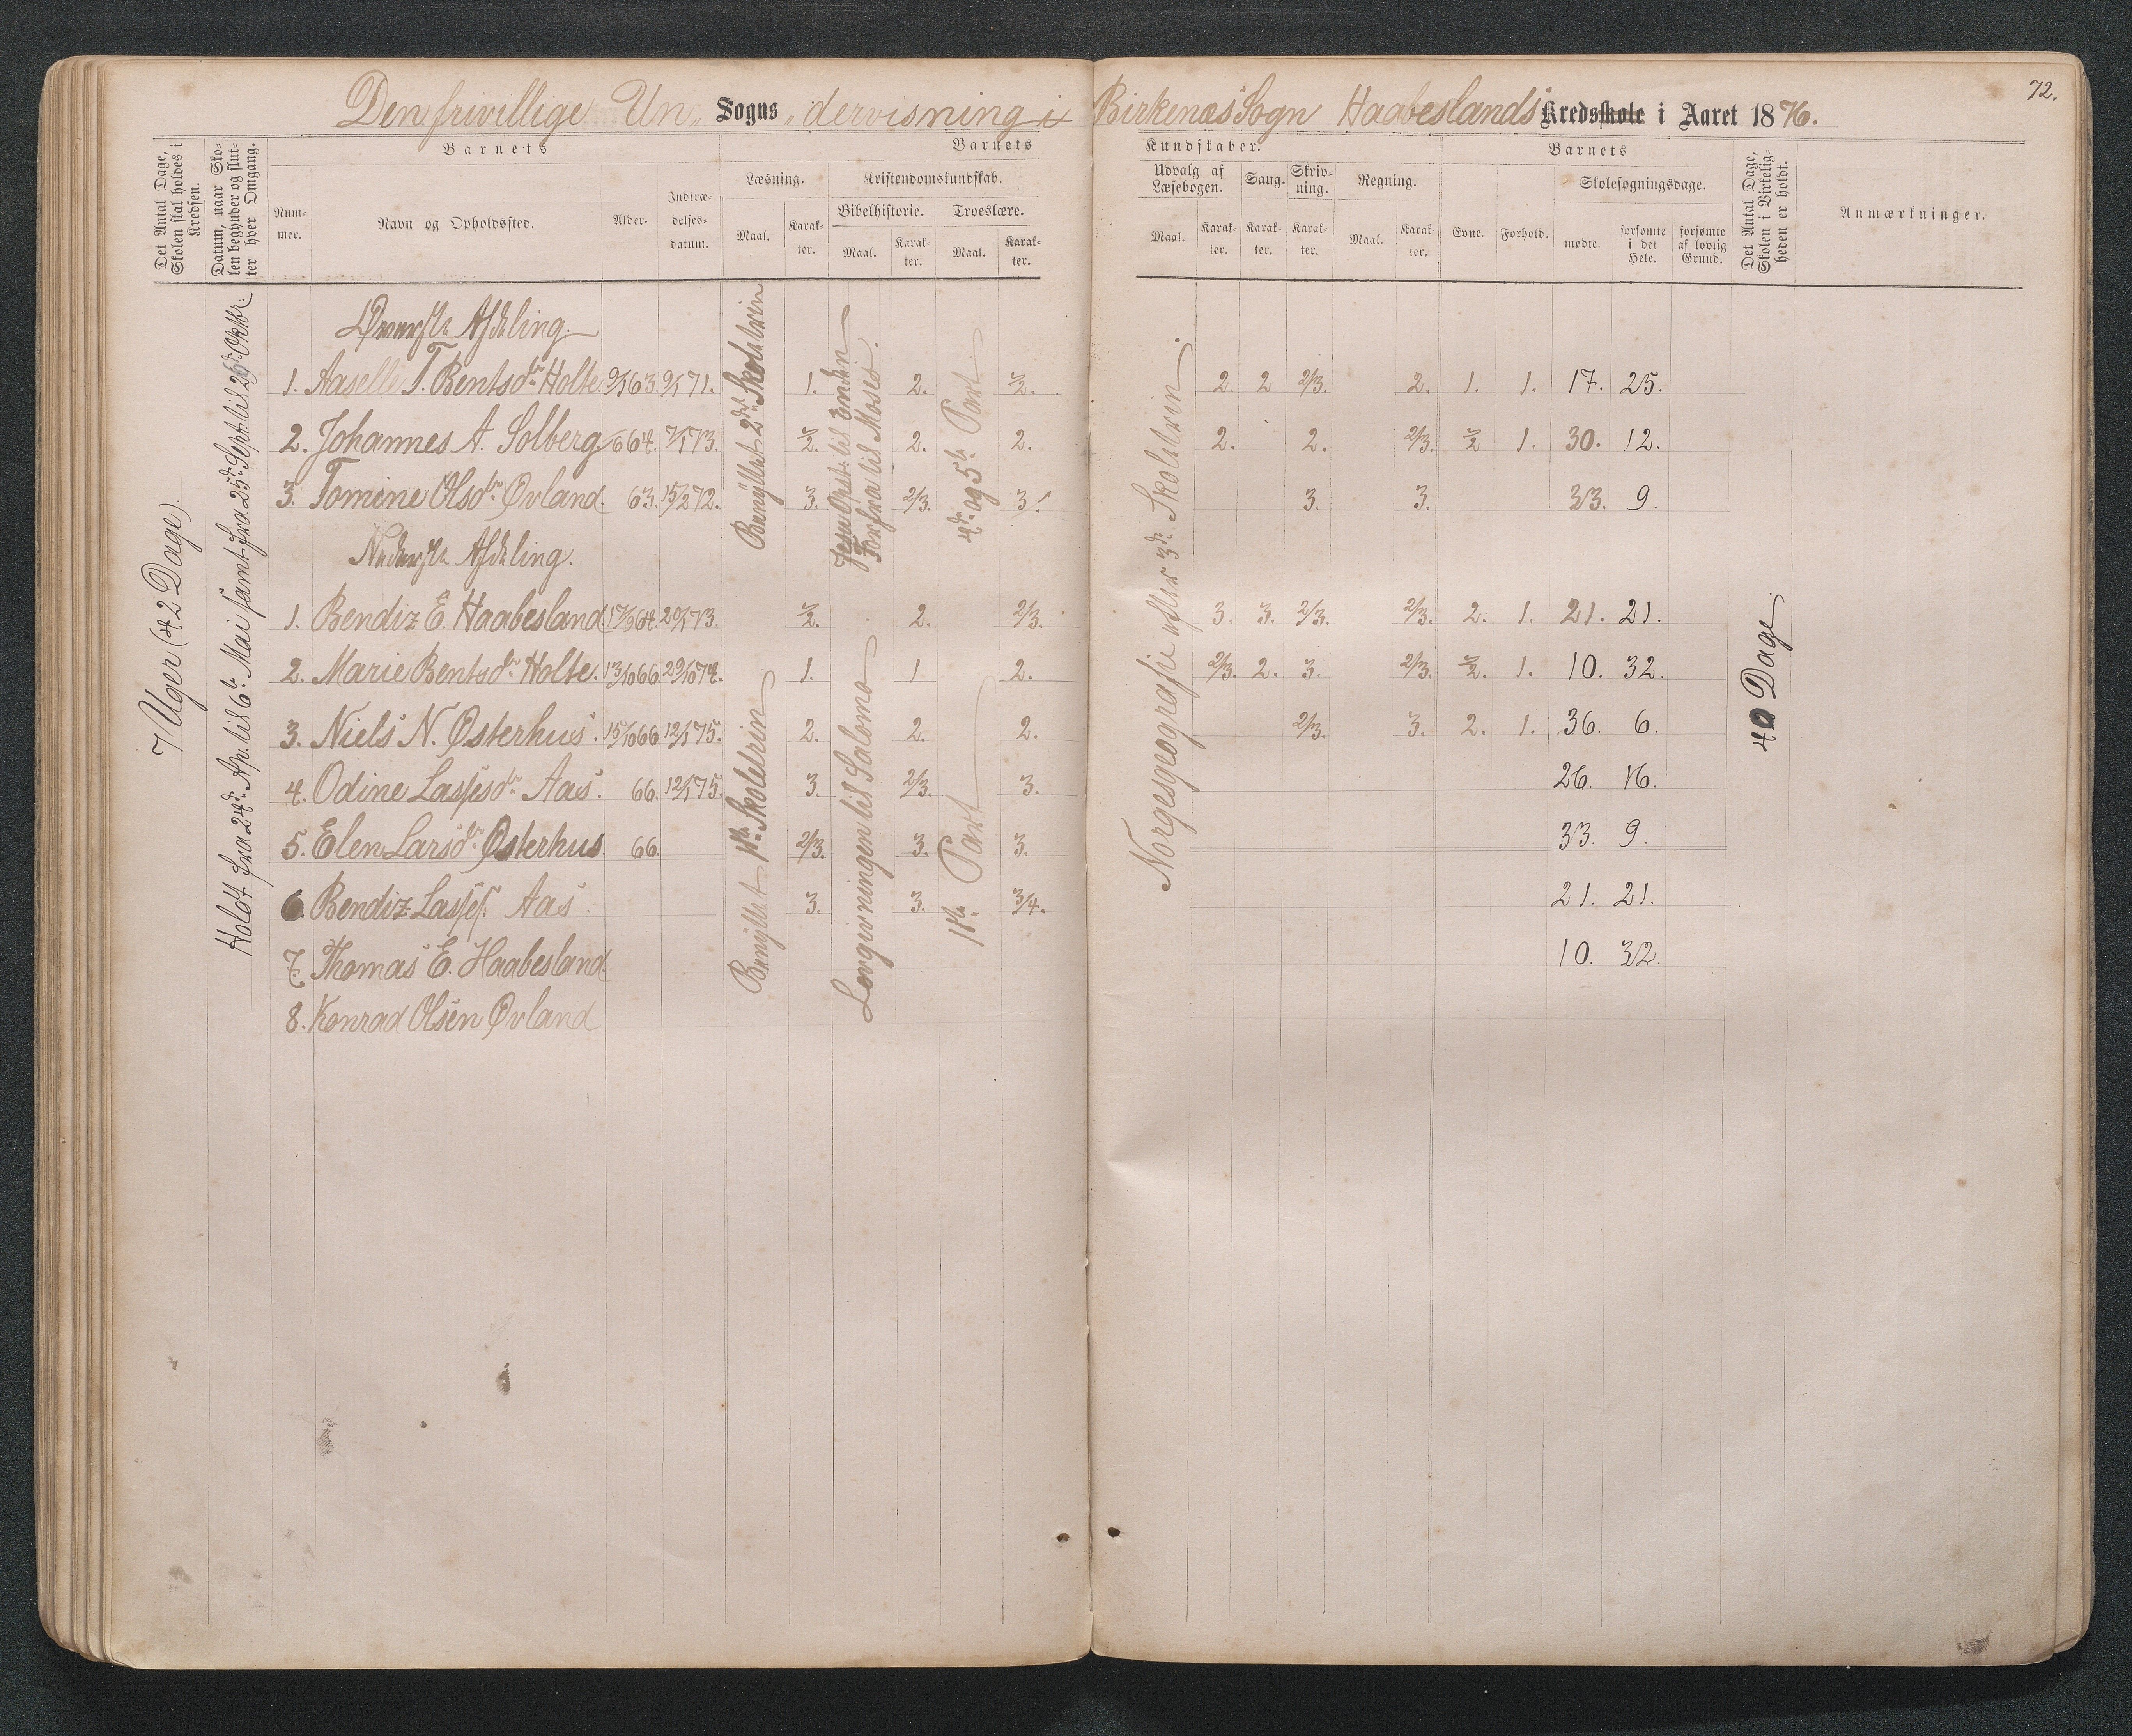 72.
Den frivillige Un„ Sogns „dervisning i Birkenæs Sogn Haabeslands Kredsskole i Aaret 1876.
Det Antal Dage, Skolen skal holdes i Kredsen.
Datum, naar Skolen begynder og slutter hver Omgang.
Barnets
Nummer.
Navn og Opholdssted.
Alder.
Indtrædelsesdatum.
Barnets
Læsning.
Maal.
Karakter.
Kristendomskundskab.
Bibelhistorie.
Maal.
Karakter.
Troeslære.
Maal.
Karakter.
Kundskaber.
Udvalg af Læsebogen.
Maal.
Karakter.
Sang.
Karakter.
Skrivning.
Karakter.
Regning.
Maal.
Karakter.
Barnets
Evne.
Forhold.
Skolesøgningsdage.
mødte.
forsømte i det Hele.
forsømte af lovlig Grund.
Det Antal Dage, Skolen i Virkeligheden er holdt.
Anmærkninger.
7 Uger (42 Dage).
Holdt fra 24de Ap. til 6te Mai samt fra 25de Sept. til 26de Oktbr.
Øverste Afdeling.
1. Aaselle T. Bentsdtr Holte 9/1 63. 9/1 71. 1. 2. ½. 2. 2 2/3. 2. 1. 1. 17. 25.
2. Johannes A. Solberg. /6 64. 7/1 73. ½. 2. 2. 2. 2. 2/3. ½ 1. 30. 12.
3. Tomine Olsdtr Øvland. 63. 15/2 72. 3. 2/3. 3. 3. 3. 33. 9.
Benyttet 2den Skoletrin
Jesu Opst. til Enden
Forfra til Moses.
4de og 5te Part
Norgesgeografie efter 3de Skoletrin
Nederste Afdeling.
1. Bendiz E. Haabesland 17/9 64. 20/1 73. ½. 2. 2/3. 3. 3. 2/3. 2/3. 2. 1. 21. 21.
2. Marie Bentsdtr Holte. 13/10 66 29/10 74. 1. 1 2. 2/3. 2. 3. 2/3. ½. 1. 10. 32.
3. Niels N. Østerhus. 15/10 66 12/1 75. 2. 2. 2. 2/3. 3. 2. 1. 36. 6.
4. Odine Lassesdtr Aas. 66. 12/1 75. 3. 2/3. 3. 26. 16.
5. Elen Larsdtr Østerhus. 66. 2/3. 3. 3. 33. 9.
6. Bendiz Lasses. Aas. 3. 3. 3/4. 21. 21.
7. Thomas E. Haabesland. 10. 32.
8. Konrad Olsen Øvland
Benyttet 1ste Skoletrin
Lovgivningen til Salomo
1ste Part
40 Dage